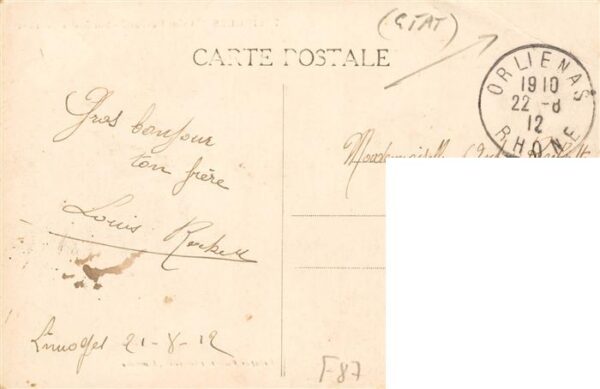 (ETAT)
CARTE POSTALE
ORLIENAS
1910
22 - 8
12
RHONE
Gros bonjour
ton frère
Louis
Mademoiselle
Limoges 21-8-12
F87